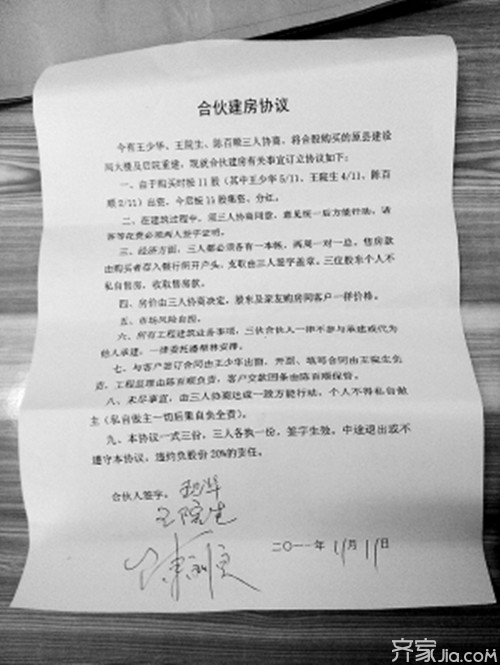 合伙建房协议
今有王少华、王院生、陈百顺三人协商，将合股购买的原县建设
局大楼及后院重建，现就合伙建房有关事宜订立协议如下：
一、自于购买时按11股（其中王少华5/11、王院生4/11、陈百
顺2/11）出资，今后按11股集资、分红。
二、在建筑过程中，需三人协商同意，意见统一后方能动作，请
客等花费必须两人签字证明。
三、经济方面，三人都必须各有一本帐，两周一对一总，售房款
由购买者存入银行的开户头，支取由三人签字盖章。三位股东个人不
私自售房，收取售房款。
四、房价由三人协商决定，股东及亲友购房同客户一样价格。
五、市场风险自担。
六、所有工程建筑业务事项，三伙合伙人一律不参与承建或代为
他人承建，一律委托潘桂林安排。
七、与客户签订合同由王少华出面，开票、填写合同由王院生负
责，工程监理由陈百顺负责，客户交款回条由陈百顺保管。
八、未尽事宜，由三人协商达成一致方能行动，个人不得私自做
主（私自做主一切后果自负全责）。
九、本协议一式三份，三人各执一份，签字生效，中途退出或不
遵守本协议，违约负股份20%的责任。
合伙人签字：
王院生
二〇一一年 1月 11日
齐家Jia.com